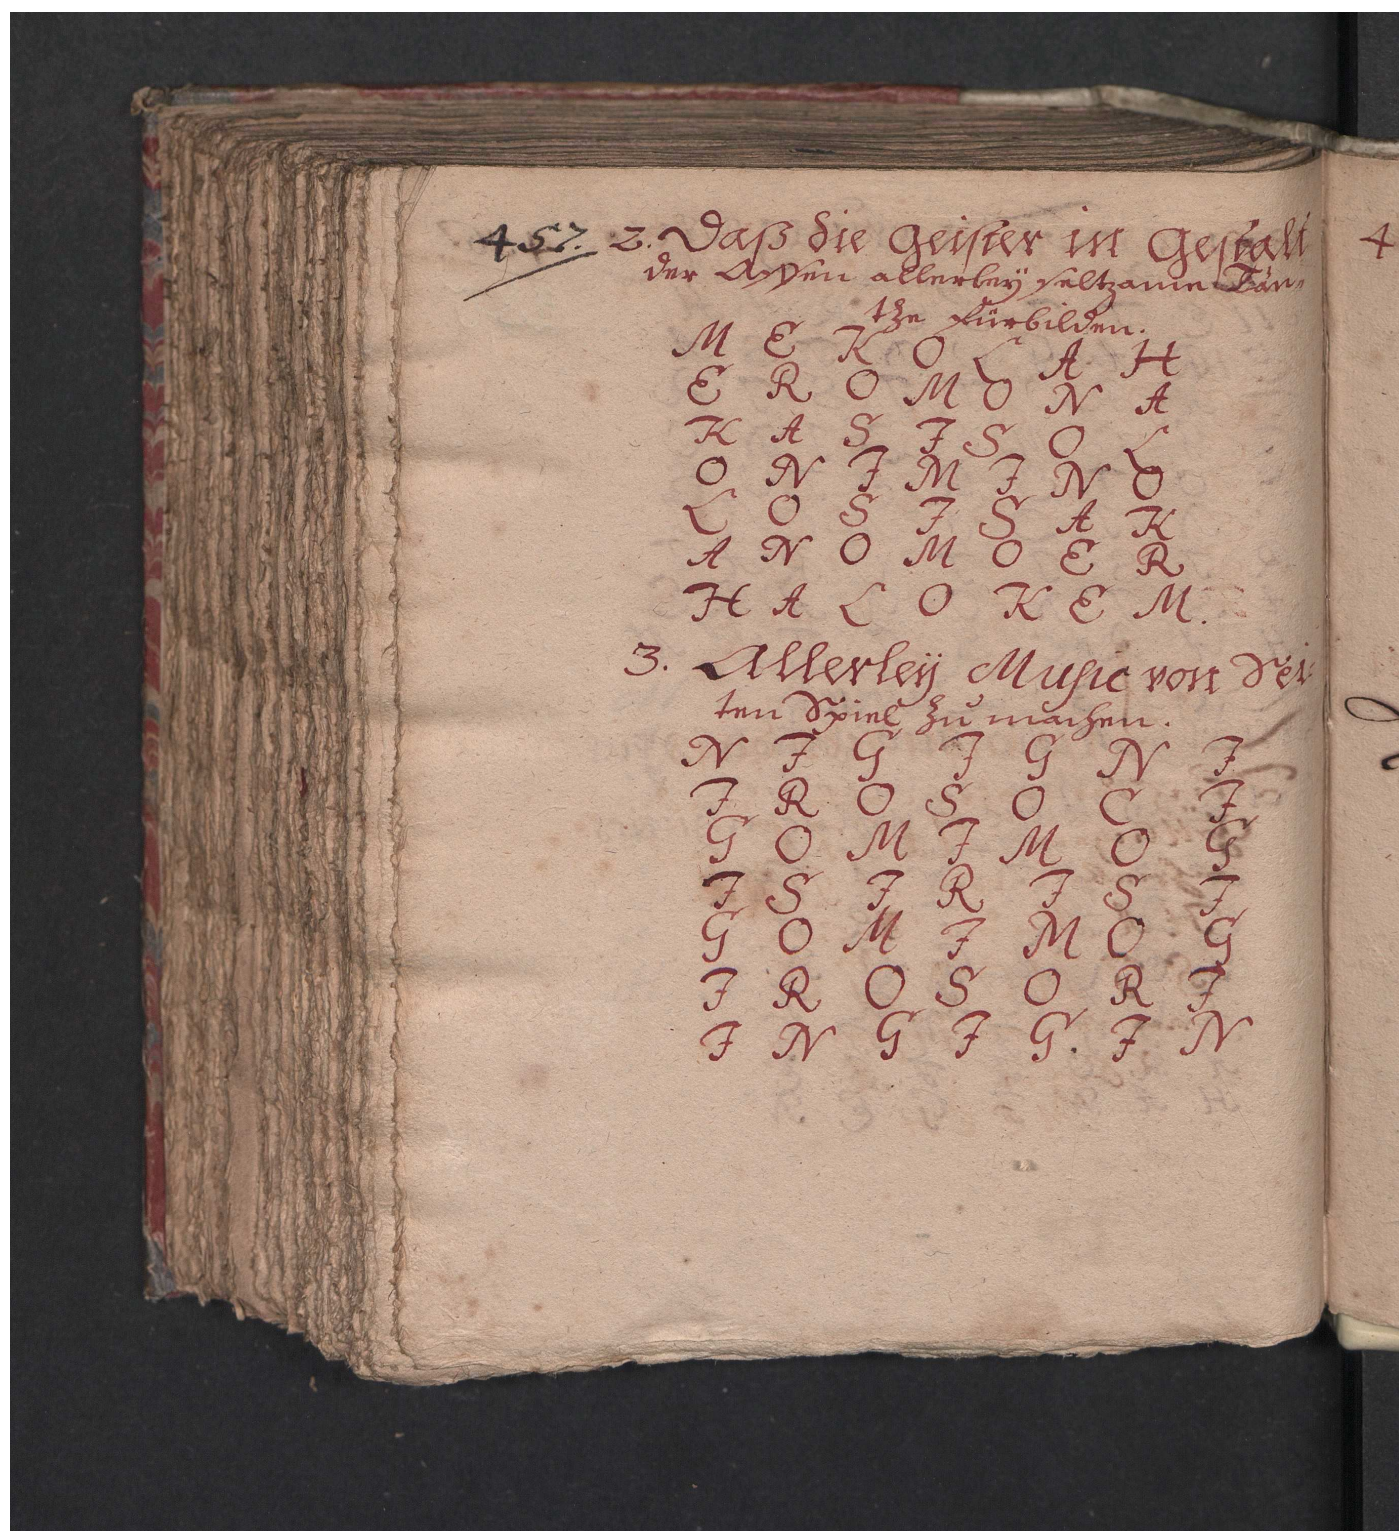 457. 2. Daß die Geister in Gestalt
der Affen allerley seltzame Tän-
tze fürbilden.
M E K O L A H
E R O M O N A
K A S I S O L
O N I M I N O
L O S I S A K
A N O M O E R
H A L O K E M.
3. Allerleÿ Music von Sei-
ten Spiel zu machen.
N I G I G N I
I R O S O C I
G O M I M O G
I S I R I S I
G O M I M O G
I R O S O R I
I N G I G. I N
4